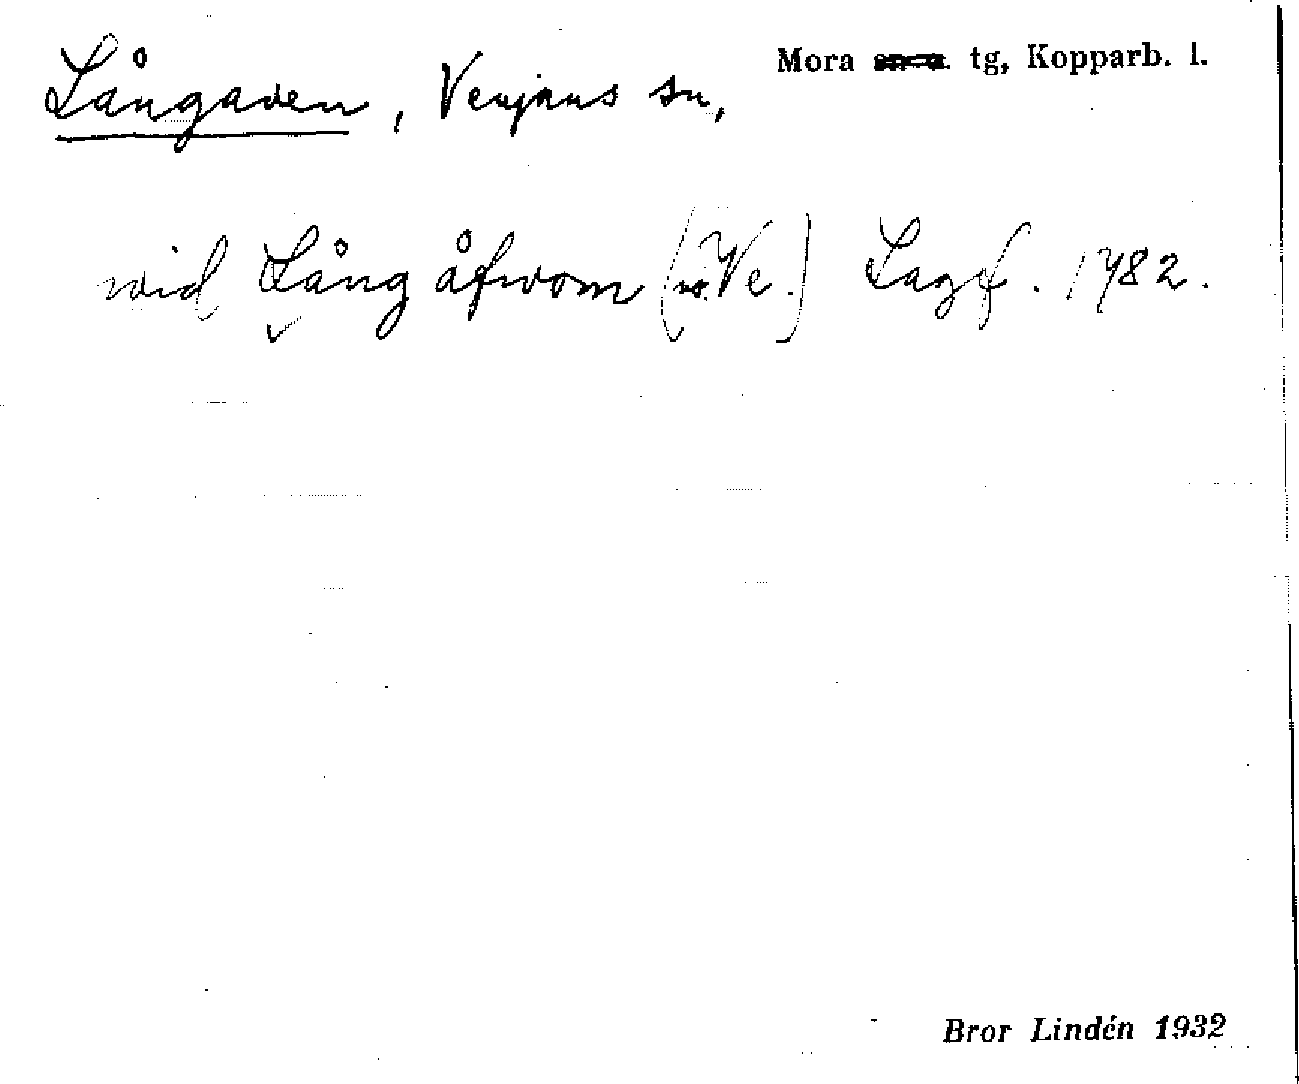 Mora socken tg, Kopparb. l.
Långaven, Venjans sn,
wid Lång åfwom (n. Ve.) Lagf. 1782.
Bror Lindén 1932